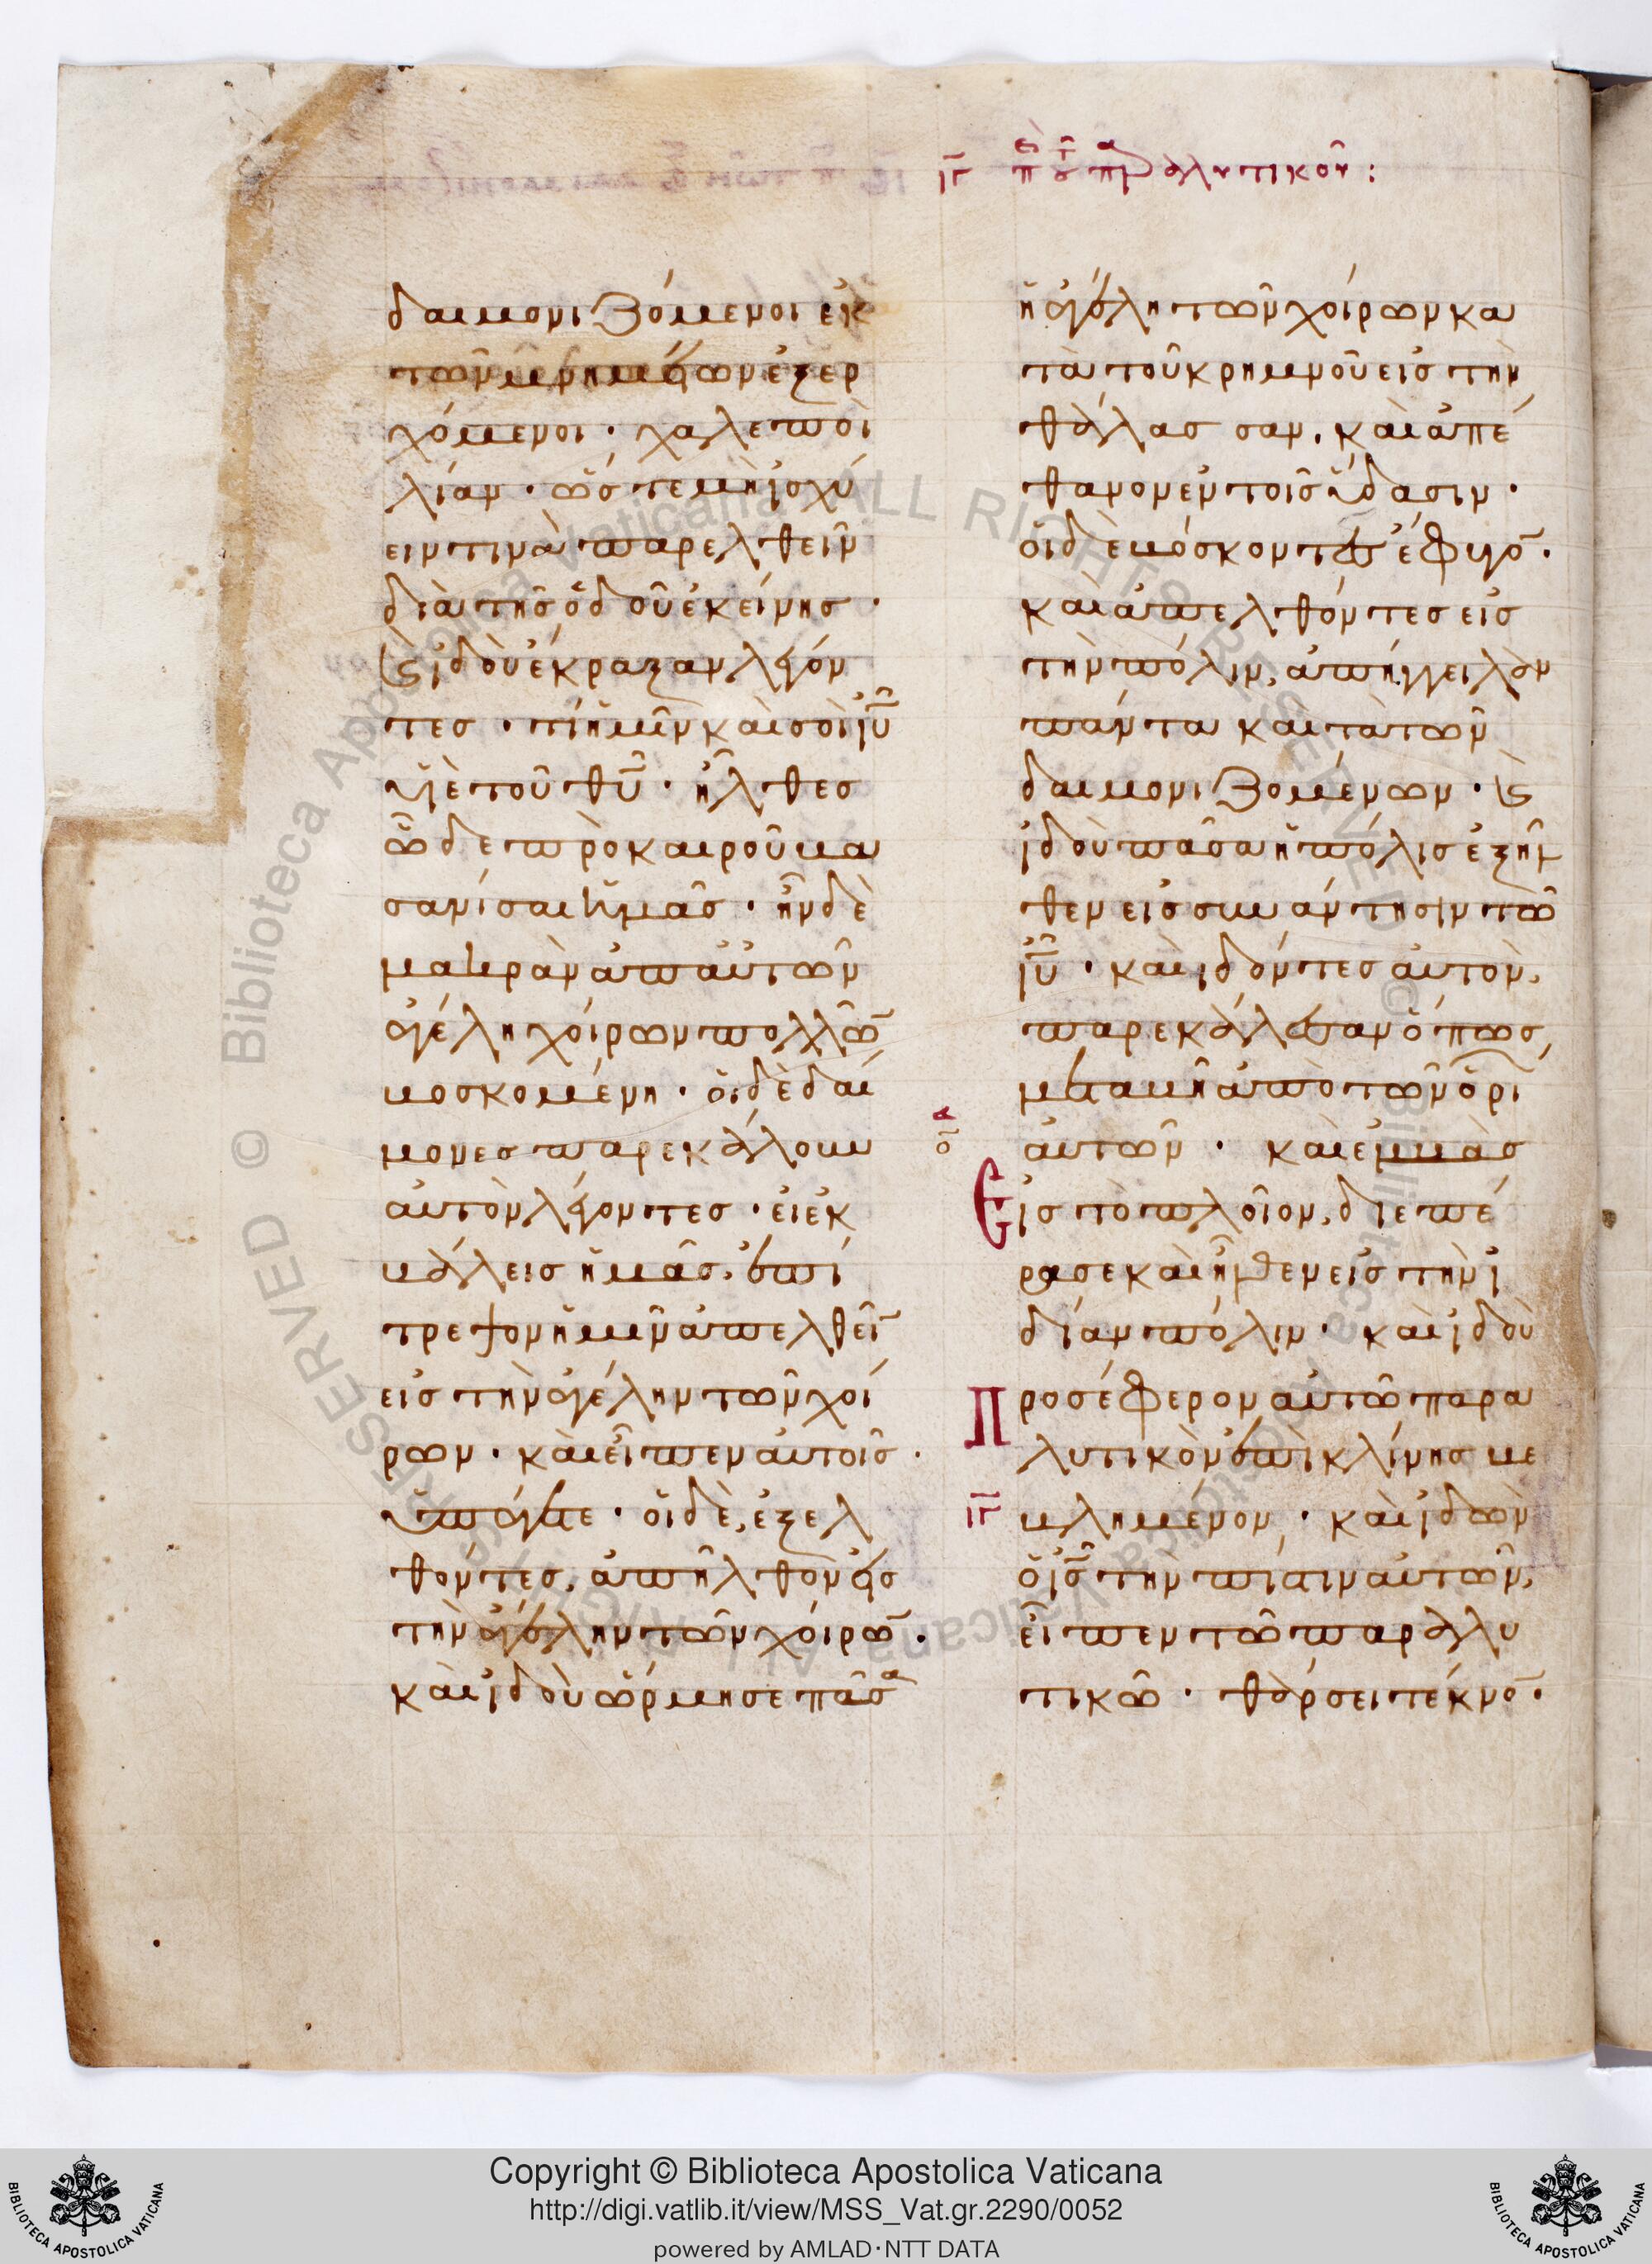 ιγ πε του παραλυτικοῦ:
δαιμονιζόμενοι ἐκ
τῶν μνημείων ἐξερ
χόμενοι · χαλεποὶ
λίαν · ὥστε μὴ ἰσχύ
ειν τινὰ παρελθεῖν
διὰ τῆς ὁδοῦ ἐκείνης ·
καὶ ἰδοὺ ἔκραξαν λέγον
τες · τί ἡμῖν καὶ σοὶ ἰῦ
υἱὲ τοῦ θῦ · ἦλθες
ὧδε πρὸ καιροῦ βα
σανίσαι ἡμᾶς · ἦν δὲ
μακρὰν ἀπ αὐτῶν
ἀγέλη χοίρων πολλῶ̄
βοσκομένη · οἱ δὲ δαί
μονες παρεκάλουν
αὐτὸν λέγοντες · εἰ ἐκ
βάλεις ἡμᾶς, ἐπί
τρεψον ἡμῖν ἀπελθεῖ̄
εἰς τὴν ἀγέλην τῶν χοί
ρων · καὶ εἶπεν αὐτοῖς ·
ὑπάγετε · οἱ δὲ, ἐξελ
θόντες, ἀπῆλθον εἰς
τὴν ἀγέλην τῶν χοίρω̄ ·
καὶ ἰδοὺ ὥρμησε πᾶσα
ἡ ἀγέλη τῶν χοίρων κα
τὰ τοῦ κρημνοῦ εἰς τὴν
θάλασσαν, καὶ ἀπέ
θανον ἐν τοῖς ὕδασιν ·
οἱ δὲ βόσκοντες ἔφυγο̄ ·
καὶ ἀπελθόντες εἰς
τὴν πόλιν, ἀπήγγειλαν
πάντα καὶ τὰ τῶν
δαιμονιζομένων · καὶ
ἰδοὺ πᾶσα ἡ πόλις ἐξῆλ
θεν εἰς συνάντησιν τῶ
ἰῦ · καὶ ἰδόντες αὐτὸν,
παρεκάλεσαν ὅπως
μεταβῆ ἀπὸ τῶν ὁρί
αὐτῶν · καὶ ἐμβὰς
Εἰς τὸ πλοῖον, διεπέ
ρασε καὶ ἦλθεν εἰς τὴν ἰ
δίαν πόλιν · καὶ ἰδοὺ
Προσέφερον αὐτῶ παρα
λυτικὸν ἐπὶ κλίνης βε
ιγ βλημένον · καὶ ἰδὼν
ὁ ἰς̄ τὴν πίστιν αὐτῶν,
εἶπεν τῶ παραλυ
τικῶ · θάρσει τέκνο̄ ·
Copyright © Biblioteca Apostolica Vaticana
http://digi.vatlib.it/view/MSS_Vat.gr.2290/0052
powered by AMLAD·NTT DATA
BIBLIOTECA APOSTOLICA VATICANA
BIBLIOTECA APOSTOLICA VATICANA